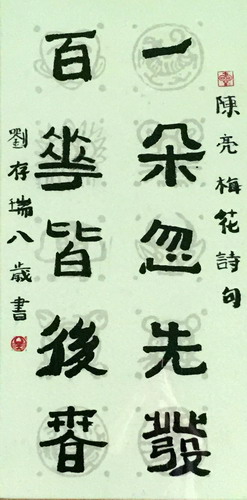 陳亮梅花詩句
一朵忽先發
百花皆後春
劉存瑞八歲書